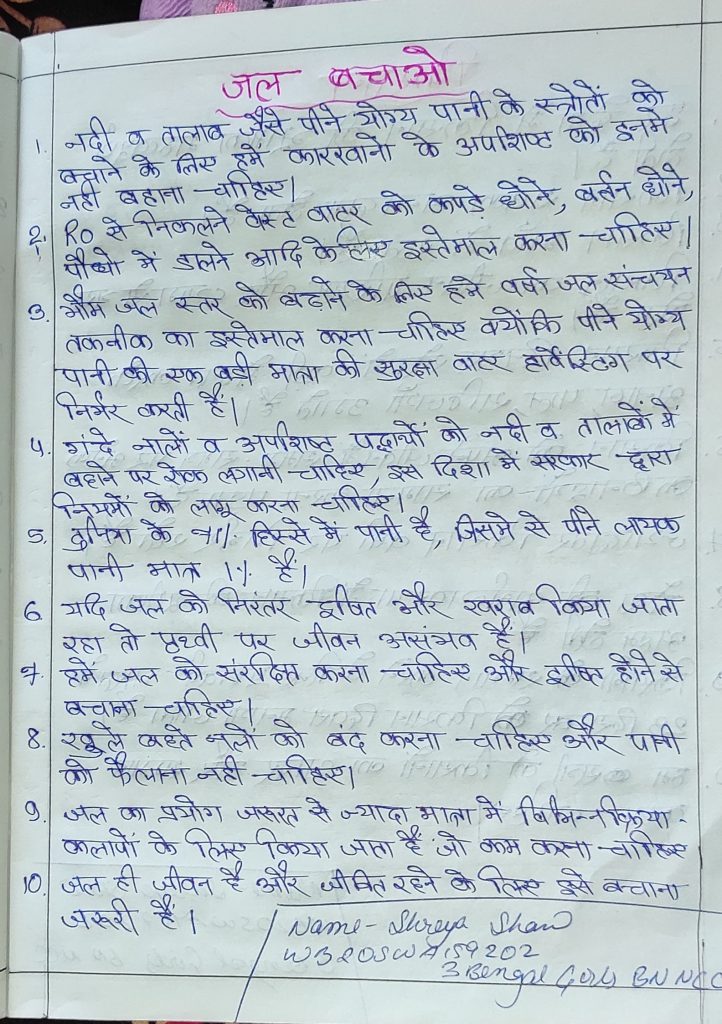 जल बचाओ
1. नदी व तालाब जैसे पीने योग्य पानी के स्त्रोतों को
बचाने के लिए हमें कारखानो के अपशिष्ट को इनमे
नही बहाना चाहिए।
2. RO से निकलने वेस्ट वाटर को कपड़े धोने, बर्तन धोने,
पौधो में डालने आदि के लिए इस्तेमाल करना चाहिए।
3. भौम जल स्तर को बढाने के लिए हमे वर्षा जल संचयन
तकनीक का इस्तेमाल करना चाहिए क्योंकि पीने योग्य
पानी की एक बड़ी मात्रा की सुरक्षा वाटर हार्वेस्टिंग पर
निर्भर करती हैं।
4. गंदे नालों व अपशिष्ट पदार्थो को नदी व तालाबों में
बहाने पर रोक लगानी चाहिए, इस दिशा में सरकार द्वारा
नियमों को लागू करना चाहिए।
5. दुनिया के 71% हिस्से में पानी है, जिसमे से पीने लायक
पानी मात्र 1% हैं।
6 यदि जल को निरंतर दूषित और खराब किया जाता
रहा तो पृथ्वी पर जीवन असंभव हैं।
7. हमें जल को संरक्षित करना चाहिए और दूषित होने से
बचाना चाहिए।
8. खुले बहते नलों को बंद करना चाहिए और पानी
को फैलाना नही चाहिए।
9. जल का प्रयोग जरूरत से ज्यादा मात्रा में विभिन्न क्रिया-
कलापों के लिए किया जाता हैं जो कम करना चाहिए
10. जल ही जीवन है और जीवित रहने के लिए इसे बचाना
जरूरी हैं।
Name- Shreya Shaw
WB20SWA159202
3 Bengal Girls BN NCC